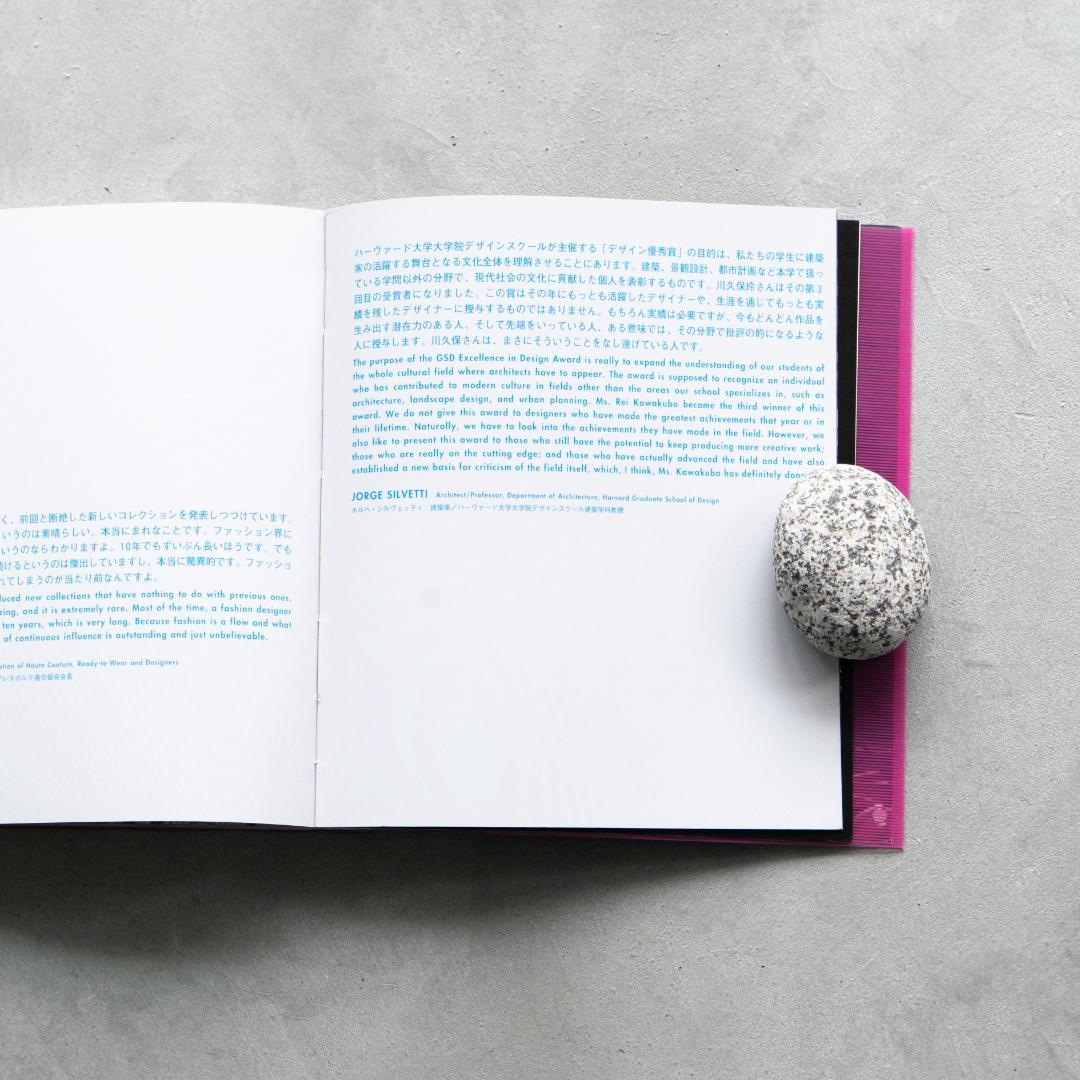 く、前回と断絶した新しいコレクションを発表しつづけています。
いうのは素晴らしい。本当にまれなことです。ファッション界に
いうのならわかりますよ。10年でもずいぶん長いほうです。でも
けるというのは傑出していますし、本当に驚異的です。ファッショ
れてしまうのが当たり前なんですよ。
duced new collections that have nothing to do with previous ones.
zing, and it is extremely rare. Most of the time, a fashion designer
ten years, which is very long. Because fashion is a flow and what
of continuous influence is outstanding and just unbelievable.
ation of Haute Couture, Ready-to-Wear and Designers
プレタポルテ連合協会会長
ハーヴァード大学大学院デザインスクールが主催する「デザイン優秀賞」の目的は、私たちの学生に建築
家の活躍する舞台となる文化全体を理解させることにあります。建築、景観設計、都市計画など本学で扱っ
ている学問以外の分野で、現代社会の文化に貢献した個人を表彰するものです。川久保玲さんはその第3
回目の受賞者になりました。この賞はその年にもっとも活躍したデザイナーや、生涯を通じてもっとも実
績を残したデザイナーに授与するものではありません。もちろん実績は必要ですが、今もどんどん作品を
生み出す潜在力のある人、そして先端をいっている人、ある意味では、その分野で批評の的になるような
人に授与します。川久保さんは、まさにそういうことをなし遂げている人です。
The purpose of the GSD Excellence in Design Award is really to expand the understanding of our students of
the whole cultural field where architects have to appear. The award is supposed to recognize an individual
who has contributed to modern culture in fields other than the areas our school specializes in, such as
architecture, landscape design, and urban planning. Ms. Rei Kawakubo became the third winner of this
award. We do not give this award to designers who have made the greatest achievements that year or in
their lifetime. Naturally, we have to look into the achievements they have made in the field. However, we
also like to present this award to those who still have the potential to keep producing more creative work;
those who are really on the cutting edge; and those who have actually advanced the field and have also
established a new basis for criticism of the field itself, which, I think, Ms. Kawakubo has definitely
JORGE SILVETTI Architect/Professor, Department of Architecture, Harvard Graduate School of Design
ホルヘ・シルヴェッティ 建築家/ハーヴァード大学大学院デザインスクール建築学科教授